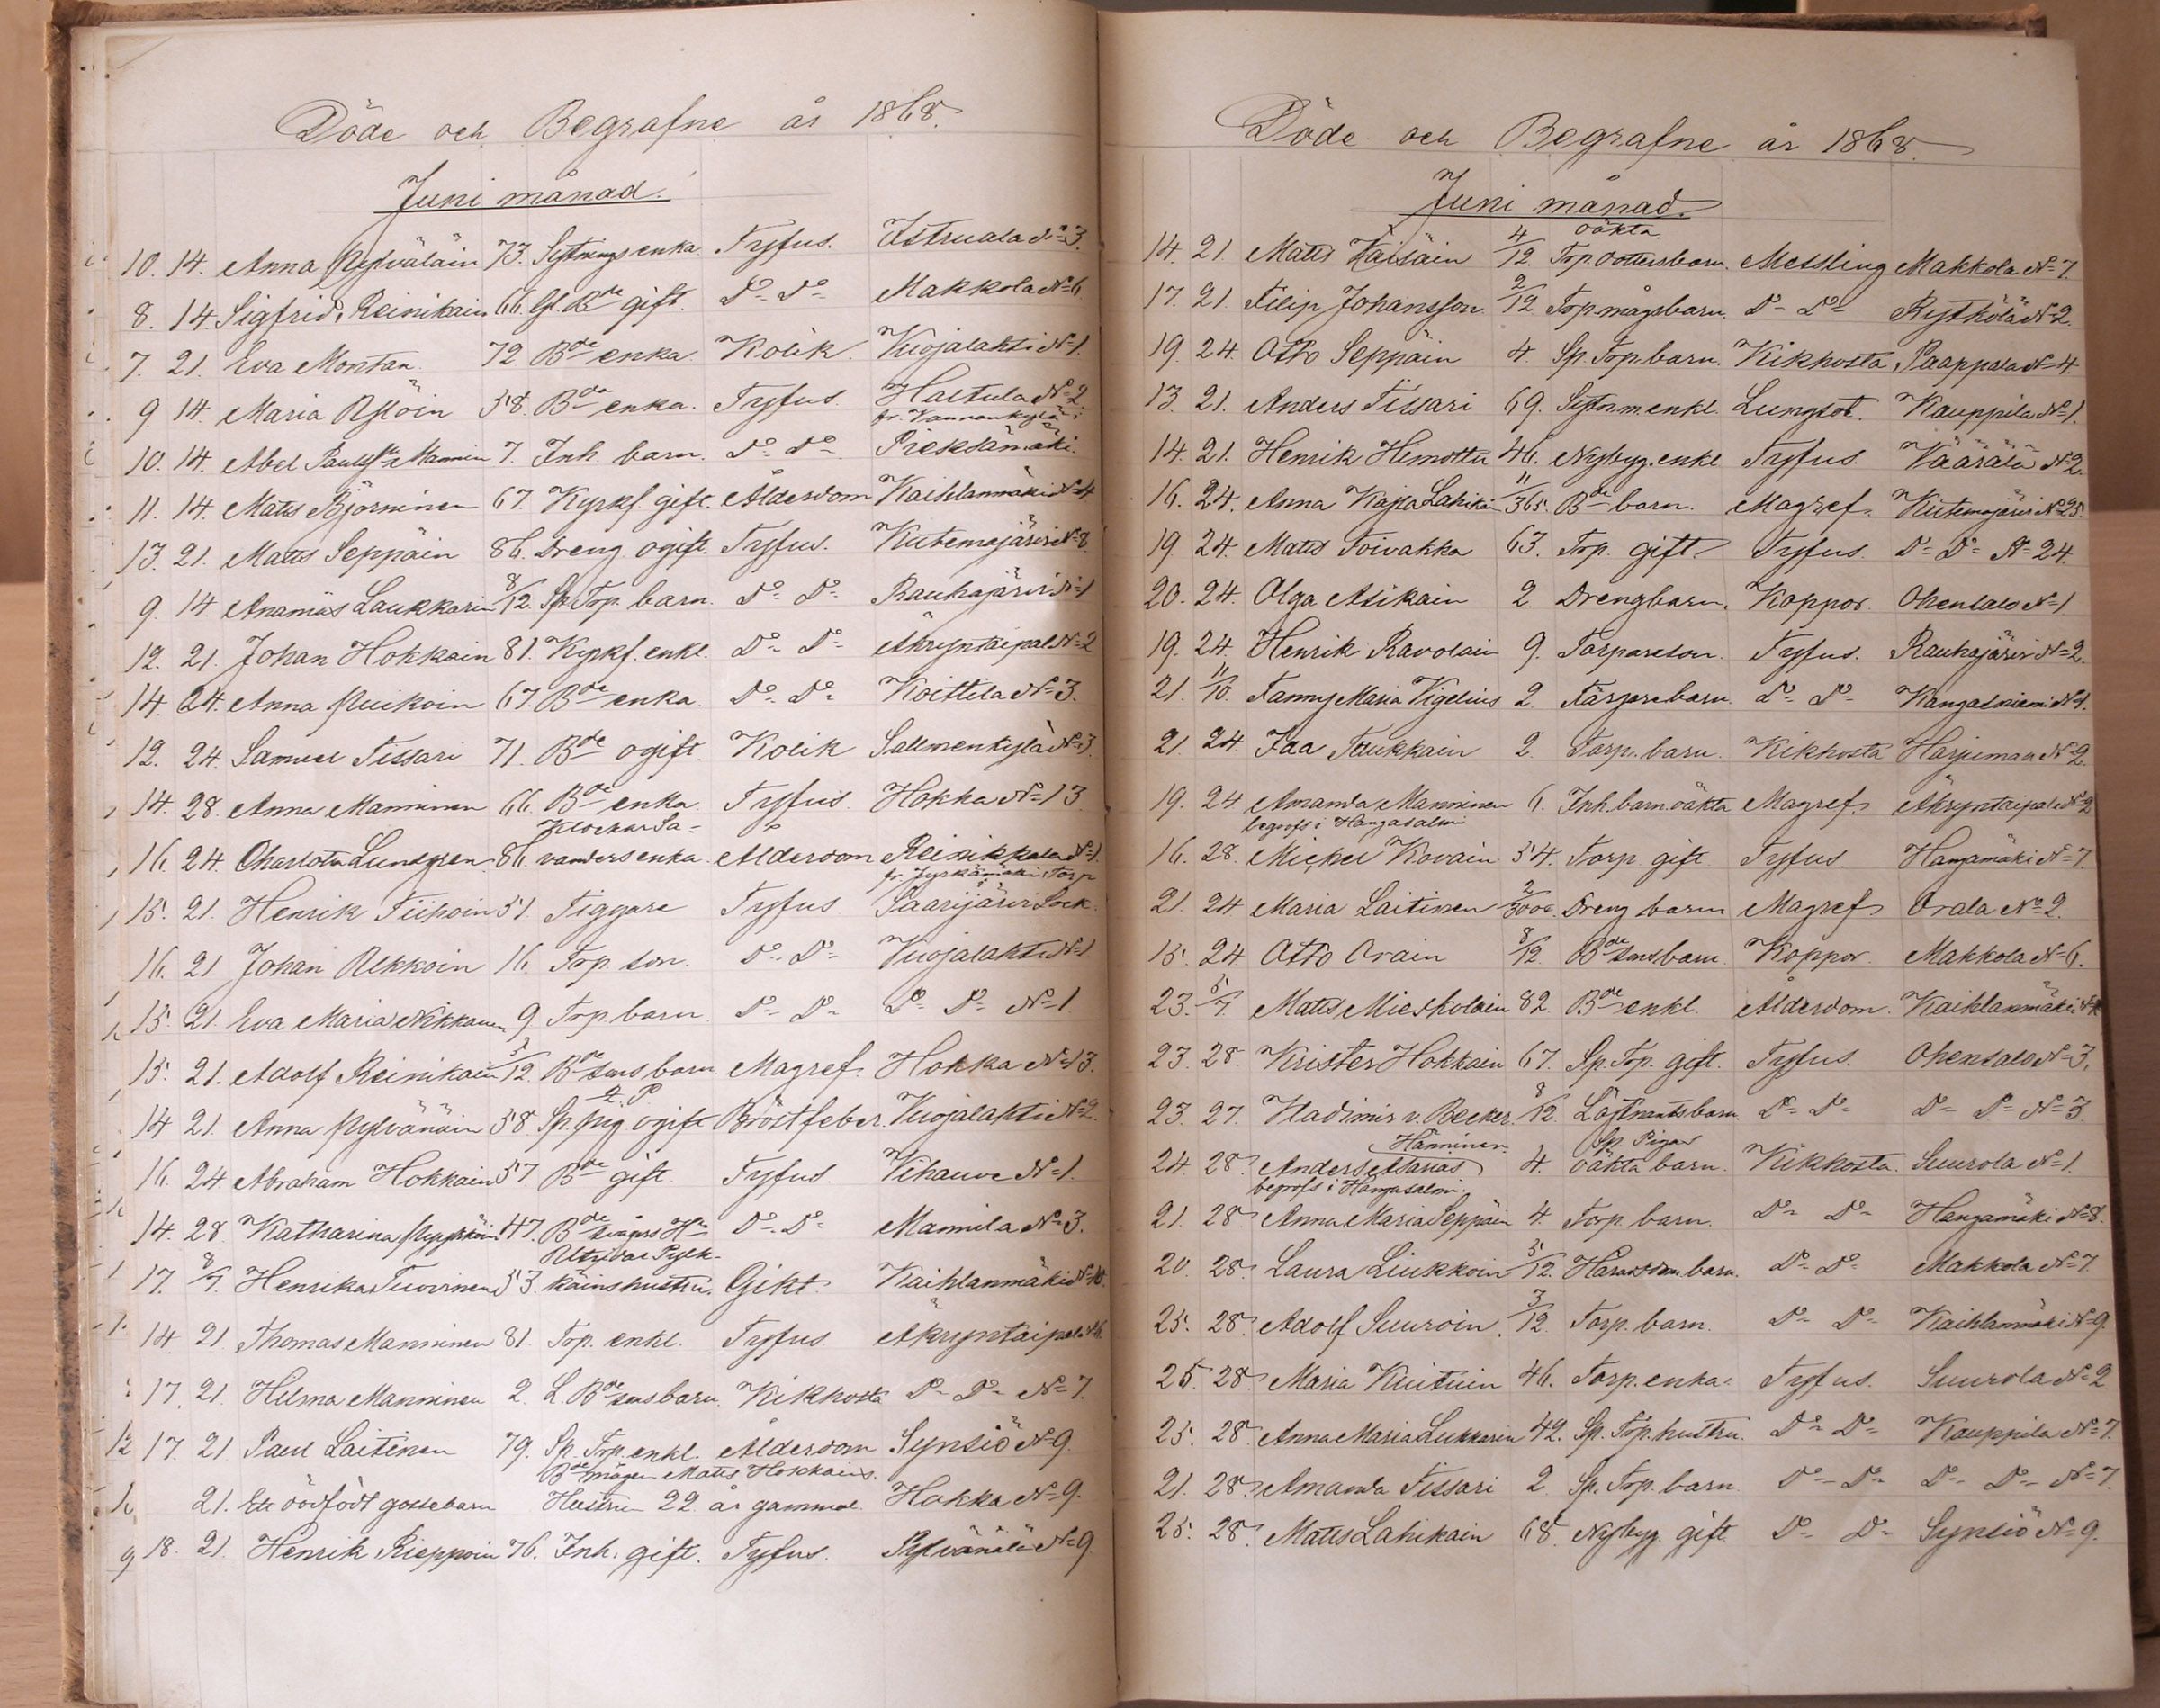 Döde och Begrafne år 1868.
Juni månad.
10. 14. Anna Pylväläin 73. Sytningsenka. Tyfus. Istruala N=3.
8. 14 Sigfrid Reinikain 66. Gl. Bde gift. Do Do Makkola N=6
7. 21. Eva Montan. 72 Bde enka. Kolik. Kuojalahti N=1.
9 14. Maria 58. Bde enka. Tyfus. Haetula N=2
10. 14. Abel Mannin 7. Inh. barn. Do Do Pieksämäki.
11. 14. Matts Björninen 67. Kyrkf. gift. Ålderdom Kaihlanmäki N=4
13. 21. Matts Seppäin 86. Dreng ogift. Tyfus. Kutemajärvi N=8
9. 14 Ananias Laukkarin 8/12. Sp. Torp. barn. Do Do Rauhajärvi N=1
12. 21. Johan Hokkain 81. Kyrkf. enkl. Do Do Äkryntaipal N=2
14. 24. Anna Puikoin 67. Bde enka. Do Do Koittila N=3.
12. 24. Samuel Tissari 71. Bde ogift. Kolik Salmenkylä N=3
14. 28. Anna Manninen 66. Bde enka. Tyfus. Hokka N=13
Klockar Sa=
16. 24. Charlotta Lundgren. 86. vanders enka. Alderdom Reinikkala N=1.
15. 21. Henrik Tiihoin 51. Tiggare Tyfus Saarijärvi Sock.
16. 21 Johan Ulkkoin 16. Torp. son. Do Do Kuojalahti N=1
15. 21. Eva Maria Nikkanen 9 Torp barn Do Do Do Do N=1
15. 21. Adolf Reinikain 5/12. Bde sons barn Magref. Hokka N=13.
14 21. Anna Pylvänäin 58. Sp. pig ogift Bröstfeber. Kuojalahti N=2.
16. 24. Abraham Hokkain 57. Bde gift. Tyfus Vihauve N=1.
14. 28. Katharina 47. Bde svågers Hu Do Do Mannila N=3.
17. 8/7. Henrika Tuovinen 53. käins hustru. Gikt. Kaihlanmäki N=10.
14. 21. Thomas Manninen 81. Torp. enkl. Tyfus Äkryntaipal
17. 21. Hilma Manninen 2. L. Bde sons barn. Kikhosta Do Do N=7.
17. 21 Paul Laitinen 79. Sp. Torp. enkl. Ålderdom Synsiö N=9.
Bde mågen Matts Hokkains.
21. Ett dödfödt gossebarn Hustru 22 år gammal. Hokka N=9.
18. 21. Henrik Rieppoin 76. Inh. gift. Tyfus. Pylvänälä N=9
Döde och Begrafne år 1868.
Juni månad.
oäkta
14. 21. Matts Kaisäin 4/12. Torp. dottersbarn. Messling Makkola N=7.
17. 21. Filip Johansson. 2/12 Torp mågsbarn. Do Do Rytkölä N=2.
19. 24. Otto Seppäin 4. Sp. Torp. barn. Kikhosta Paappala N=4.
13. 21. Anders Tissari 69. Sytn.m. enkl. Lungsot. Kauppila N=1.
14. 21. Henrik Himottu 46. Nybyg. enkl. Tyfus. Väärälä N=2.
16. 24. Anna Kajsa Lahikain 11/365. Bde barn. Magref. Kutemajärvi N=25.
19 24. Matts Toivakka 63. Torp. gift. Tyfus. Do Do N=24.
20. 24. Olga Asikain 2. Drengbarn. Koppor. Ohensalo N=1
19. 24. Henrik Ravolain 9. Torpareson. Tyfus. Rauhajärvi N=2.
21. 11/10. Fanny Maria Vigelius 2. Färgare barn. Do Do Kangasniemi N=4.
21. 24. Ida Taukkain 2. Torp. barn. Kikhosta Harjumaa N=2.
19. 24 Amanda Manninen 6. Inh. barn oäkta Magref. Äkryntaipale N=2
begrofs i Hangasalmi
16. 28. Mickel Kovain 54. Torp. gift Tyfus. Hangamäki N=7.
21. 24 Maria Laitinen Dreng barn Magref Orala No 2.
15. 24 Otto Orain 8/12. Bde sons barn Koppor. Makkola N=6.
23. 5/7. Matts Mieskolain 82. Bde enkl. Ålderdom. Kaihlanmäki
23. 28. Krister Hokkain 67. Sp. Torp. gift. Tyfus. Ohensalo N=3.
23. 27. Vladimir v. Becker. 8/12. Löjtnants barn. Do Do Do Do N=3
Hänninen. Sp. Pigas
24. 28. Anders Assarias 4. oäkta barn. Kikhosta. Suurola N=1.
begrofs i Hangasalmi.
21. 28. Anna Maria Seppäin 4. Torp. barn. Do Do Hangamäki N=8.
20. 28. Laura Liukkoin 5/12. barn. Do Do Makkola N=7.
25. 28. Adolf Suuroin. 3/12. Torp. barn. Do Do Kaihlanmäki N=9.
25. 28. Maria Kuituin 46. Torp. enka. Tyfus. Suurola N=2
25. 28. Anna Maria Lukkarin 42. Sp. Torp. hustru. Do Do Kauppila N=7.
21. 28. Amanda Tissari 2. Sp. Torp. barn Do Do Do Do N=7.
25. 28. Matts Lahikain 68. Nybyg. gift Do Do Synsiö N=9.